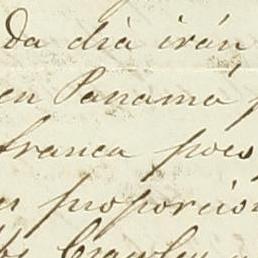 da dia irán
en Panamá
franca poes
proporcion